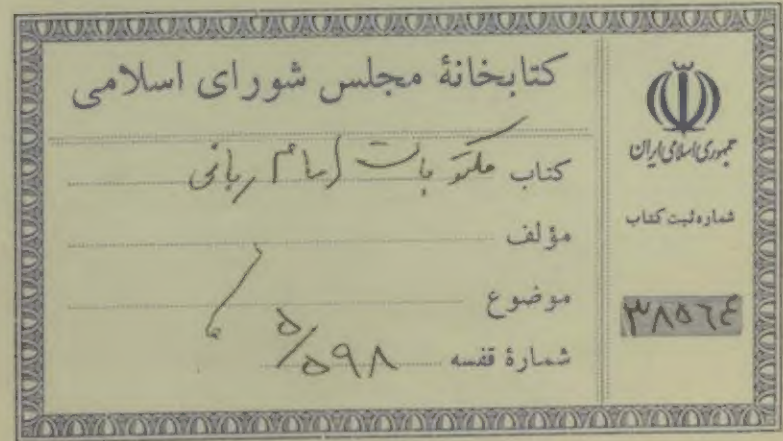 کتابخانهٔ مجلس شورای اسلامی
کتاب مکتوبات امام ربانی
مؤلف
موضوع
شمارهٔ قفسه ۵/۵۹۸
جمهوری اسلامی ایران
شماره ثبت کتاب
۳۸۵۶۴